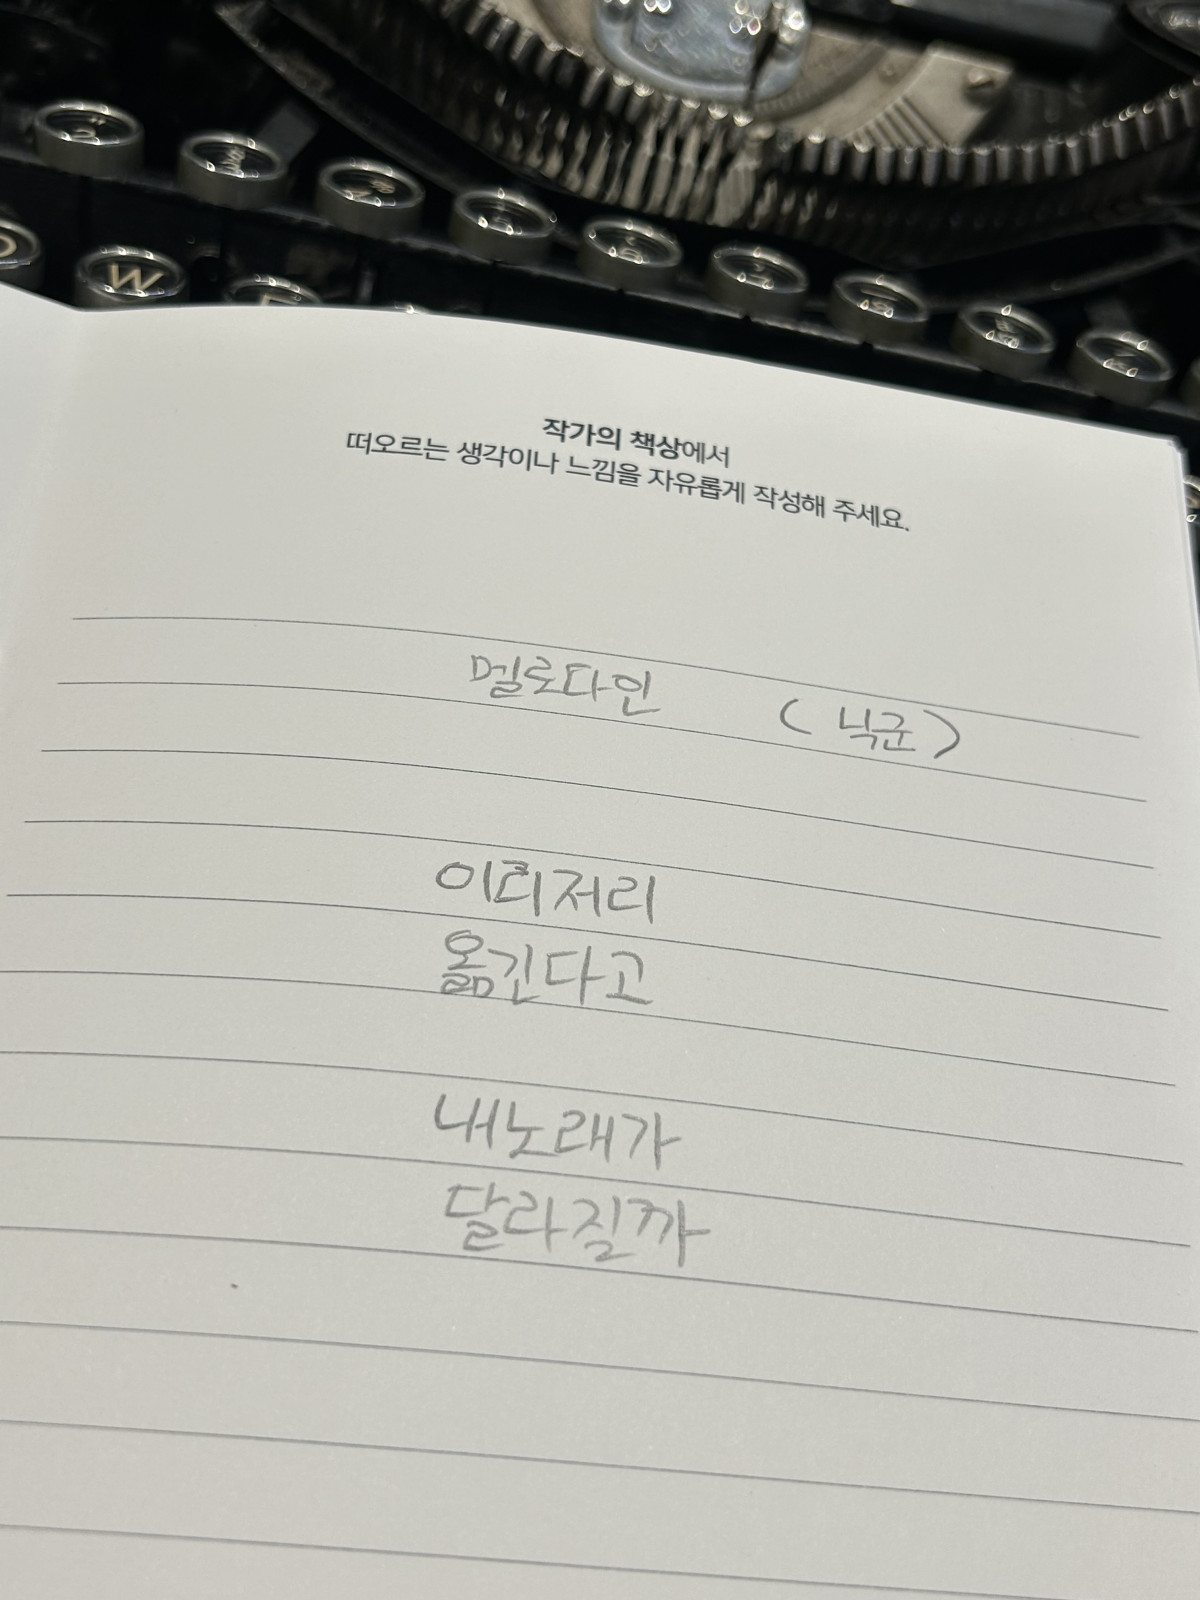 W
작가의 책상에서
떠오르는 생각이나 느낌을 자유롭게 작성해 주세요.
멜로다인 (닉군)
이리저리
옮긴다고
내노래가
달라질까